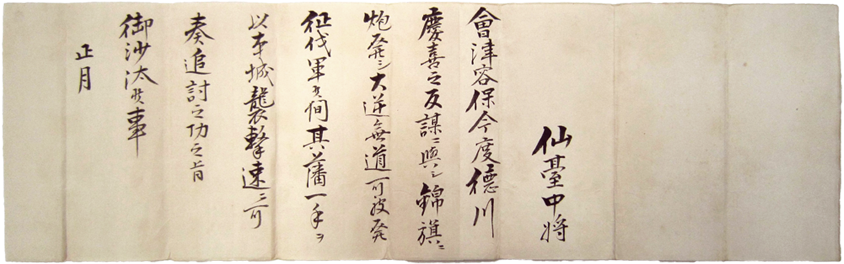 仙臺中将
會津容保今度徳川
慶喜之反謀ニ與シ錦旗ニ
炮発シ大逆無道可被発
征伐軍候間其藩一手ヲ
以本城襲撃速ニ可
奏追討之功之旨
御沙汰候事
正月